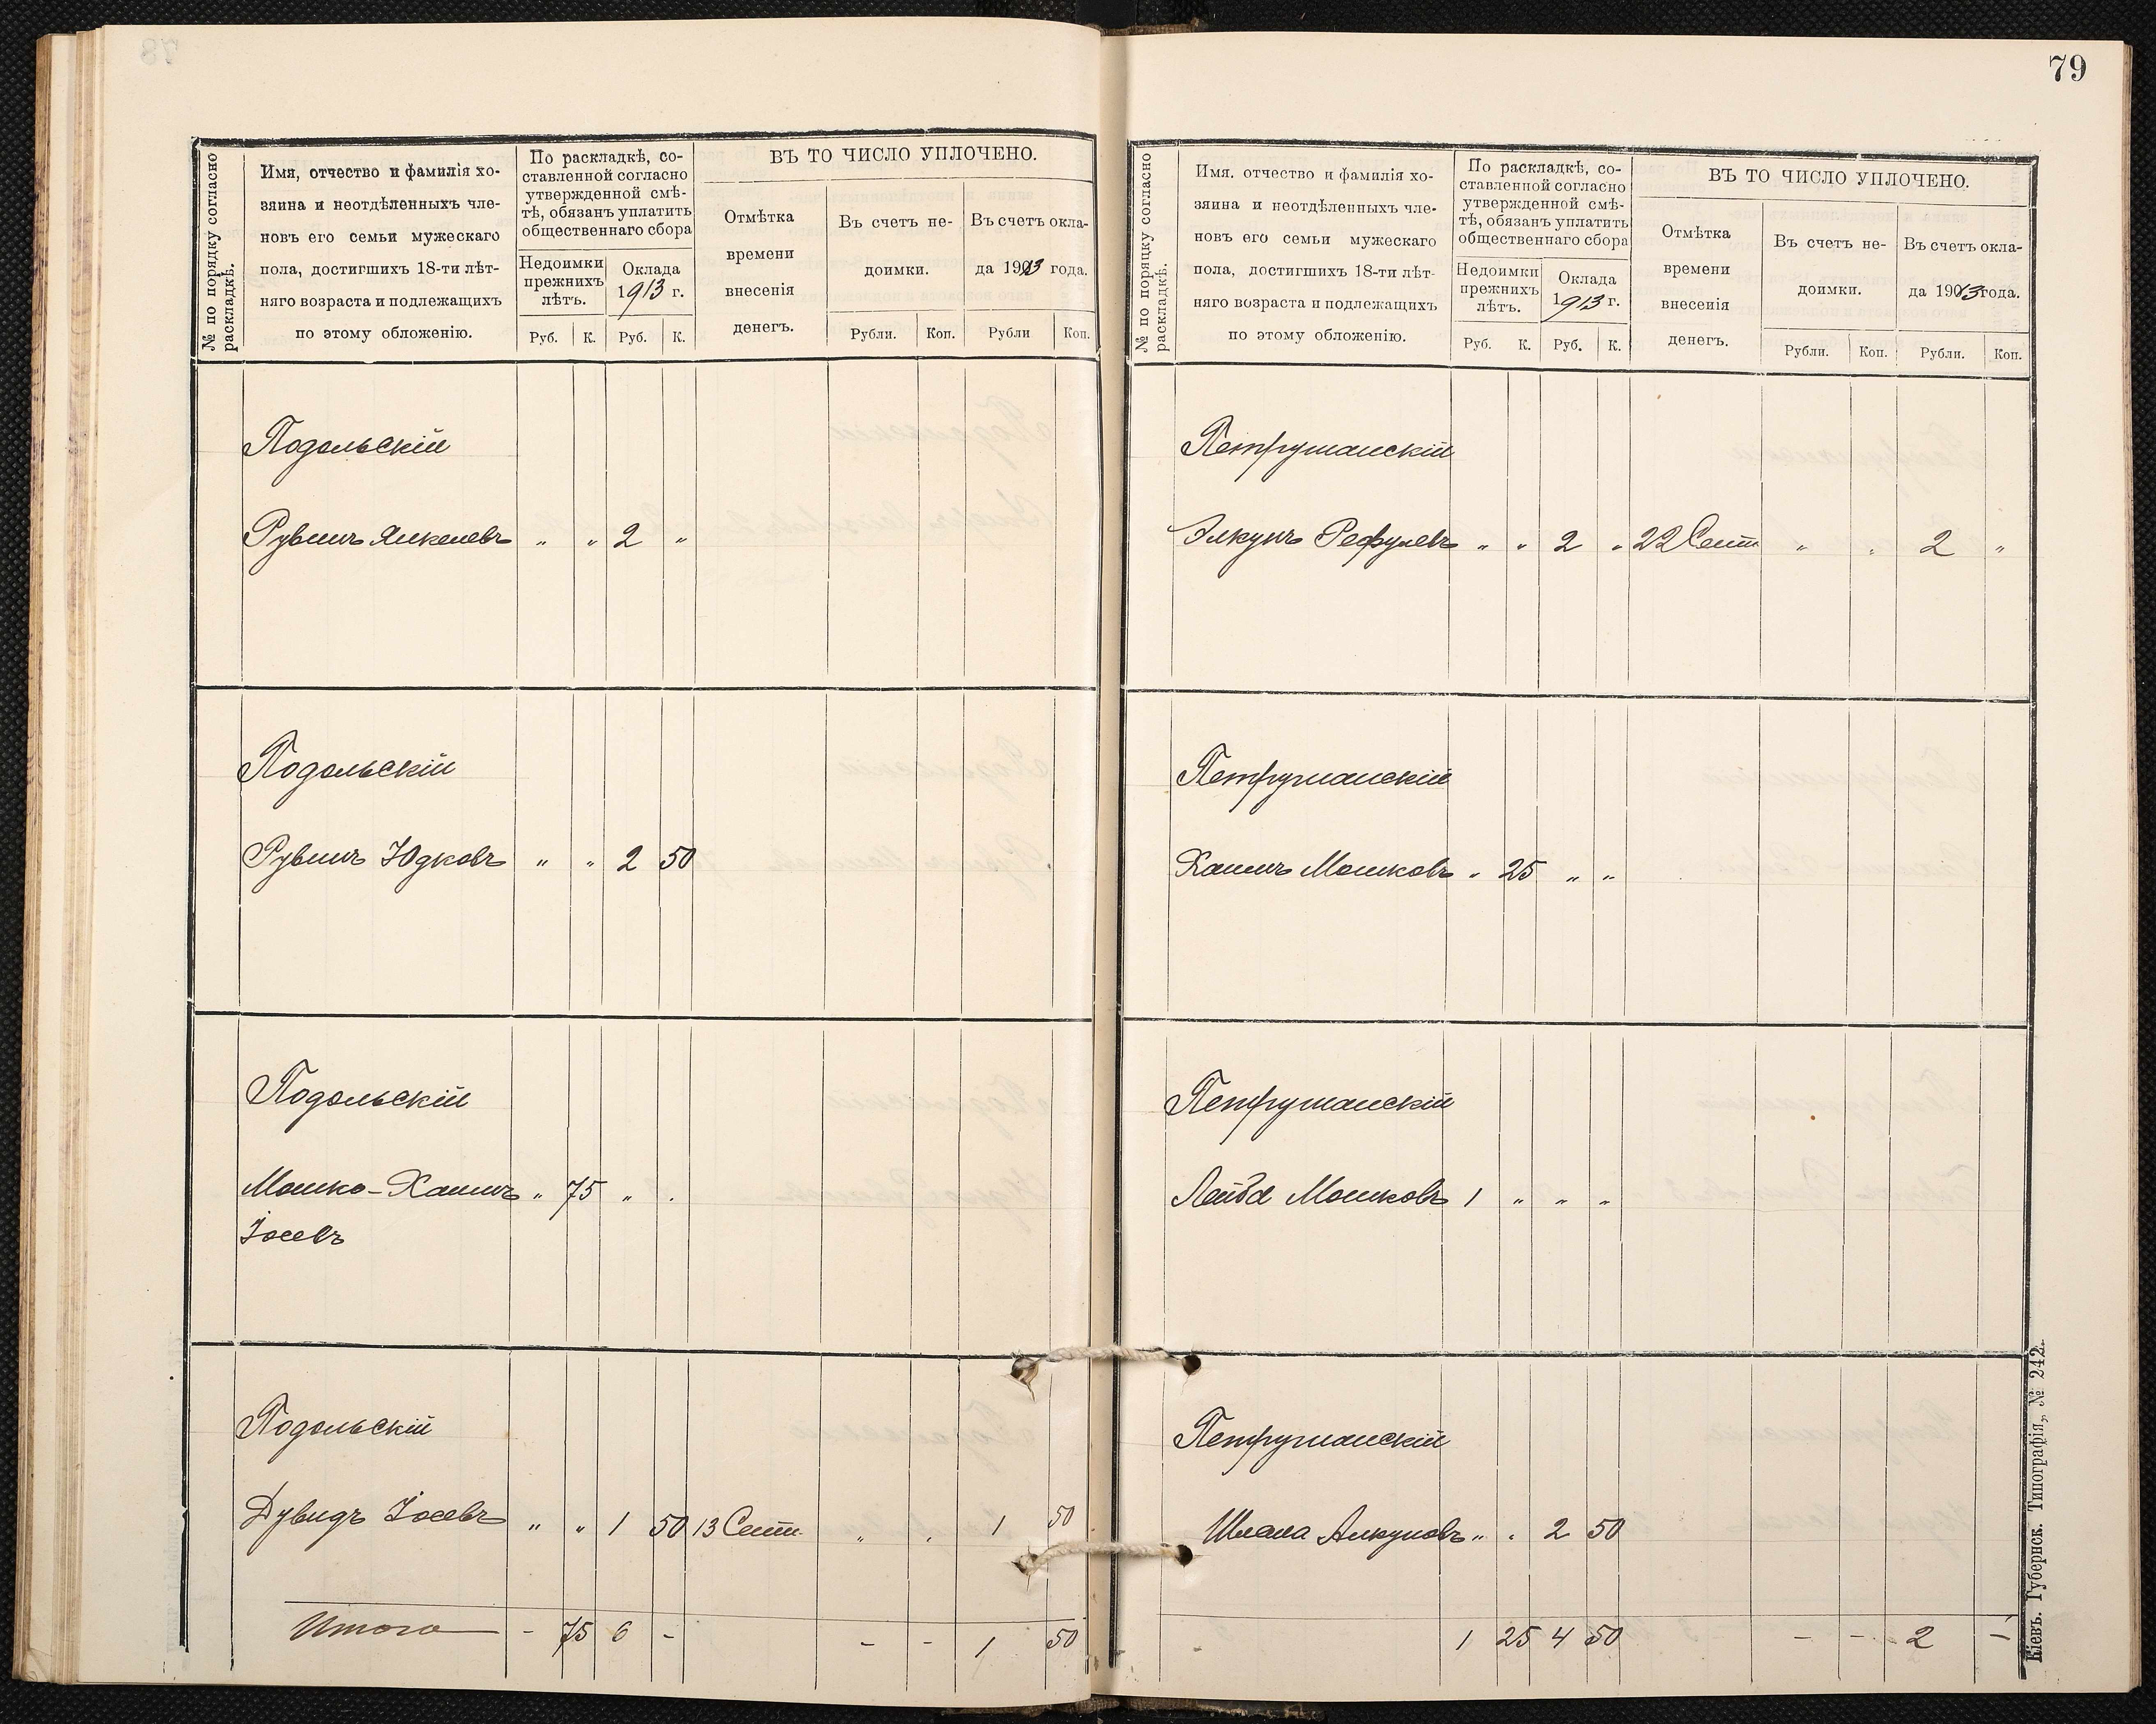 79
№ по порядку согласно раскладкѣ.
Имя, отчество и фамилія хо-
зяина и неотдѣленныхъ чле-
новъ его семьи мужескаго
пола, достигшихъ 18-ти лѣт-
няго возраста и подлежащихъ
по этому обложенію.
По раскладкѣ, со-
ставленной согласно
утвержденной смѣ-
тѣ, обязанъ уплатить
общественнаго сбора
Недоимки
прежнихъ
лѣтъ.
Оклада
1913 г.
Руб. К. Руб. К.
ВЪ ТО ЧИСЛО УПЛОЧЕНО.
Отмѣтка
времени
внесенія
денегъ.
Въ счетъ не-
доимки.
Въ счетъ окла-
да 1913 года.
Рубли. Коп. Рубли Коп.
Подольскій
Рувинъ Янкелевъ „ „ 2 „
Подольскій
Рувинъ Юдковъ „ „ 2 50
Подольскій
Мошко-Хаимъ „ 75 „ .
Іосевъ
Подольскій
Дувидъ Іосевъ „ „ 1 50 13 Сент. „ . 1 50
Итого - 75 6 - - - 1 50
№ по поряцку согласно раскладкѣ.
Имя, отчество и фамилія хо-
зяина и неотдѣленныхъ чле-
новъ его семьи мужескаго
пола, достигшихъ 18-ти лѣт-
няго возраста и подлежащихъ
по этому обложенію.
По раскладкѣ, со-
ставленной согласно
утвержденной смѣ-
тѣ, обязанъ уплатить
общественнаго сбора
Недоимки
прежнихъ
лѣтъ.
Оклада
1913 г.
Руб. К. Руб. К.
ВЪ ТО ЧИСЛО УПЛОЧЕНО.
Отмѣтка
времени
внесенія
денегъ.
Въ счетъ не-
доимки.
Въ счетъ окла-
да 1913 года.
Рубли. Коп. Рубли. Коп.
Петрушанскій
Элкунъ Рефулевъ „ „ 2 „ 22 Сент „ „ 2 „
Петрушанскій
Хаимъ Мошковъ „ 25 „ „
Петрушанскій
Лейба Мошковъ 1 „ „ „
Петрушанскій
Шлема Алкуновъ „ „ 2 50
1 25 4 50 - - 2 -
Кіевъ. Губернск. Типографія, № 242.